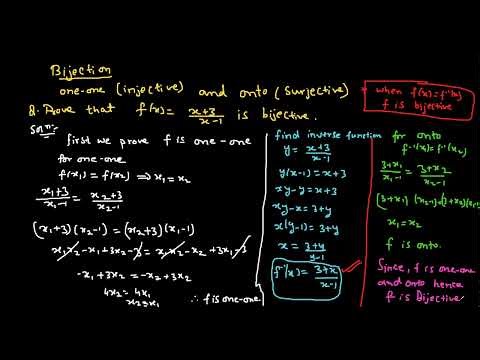 Bijection
one-one (injective) and onto (surjective)
* when f(x)=f⁻¹(x)
f is bijective
Q. Prove that f(x) = x+3/x-1 is bijective.
Soln:
first we prove f is one-one
for one-one
f(x₁) = f(x₂) ⇒ x₁ = x₂
x₁+3/x₁-1 = x₂+3/x₂-1
(x₁+3)(x₂-1) = (x₂+3)(x₁-1)
x₁x₂-x₁+3x₂-3 = x₁x₂-x₂+3x₁-3
-x₁+3x₂ = -x₂+3x₁
4x₂ = 4x₁
x₂=x₁
∴ f is one-one
find inverse function
y = x+3/x-1
y(x-1) = x+3
xy-y = x+3
xy-x = 3+y
x(y-1) = 3+y
x = 3+y/y-1
f⁻¹(x) = 3+x/x-1
for onto
f⁻¹(x₁) = f⁻¹(x₂)
3+x₁/x₁-1 = 3+x₂/x₂-1
(3+x₁)(x₂-1)=(3+x₂)(x₁-1)
x₁ = x₂
f is onto.
Since, f is one-one
and onto hence
f is Bijective